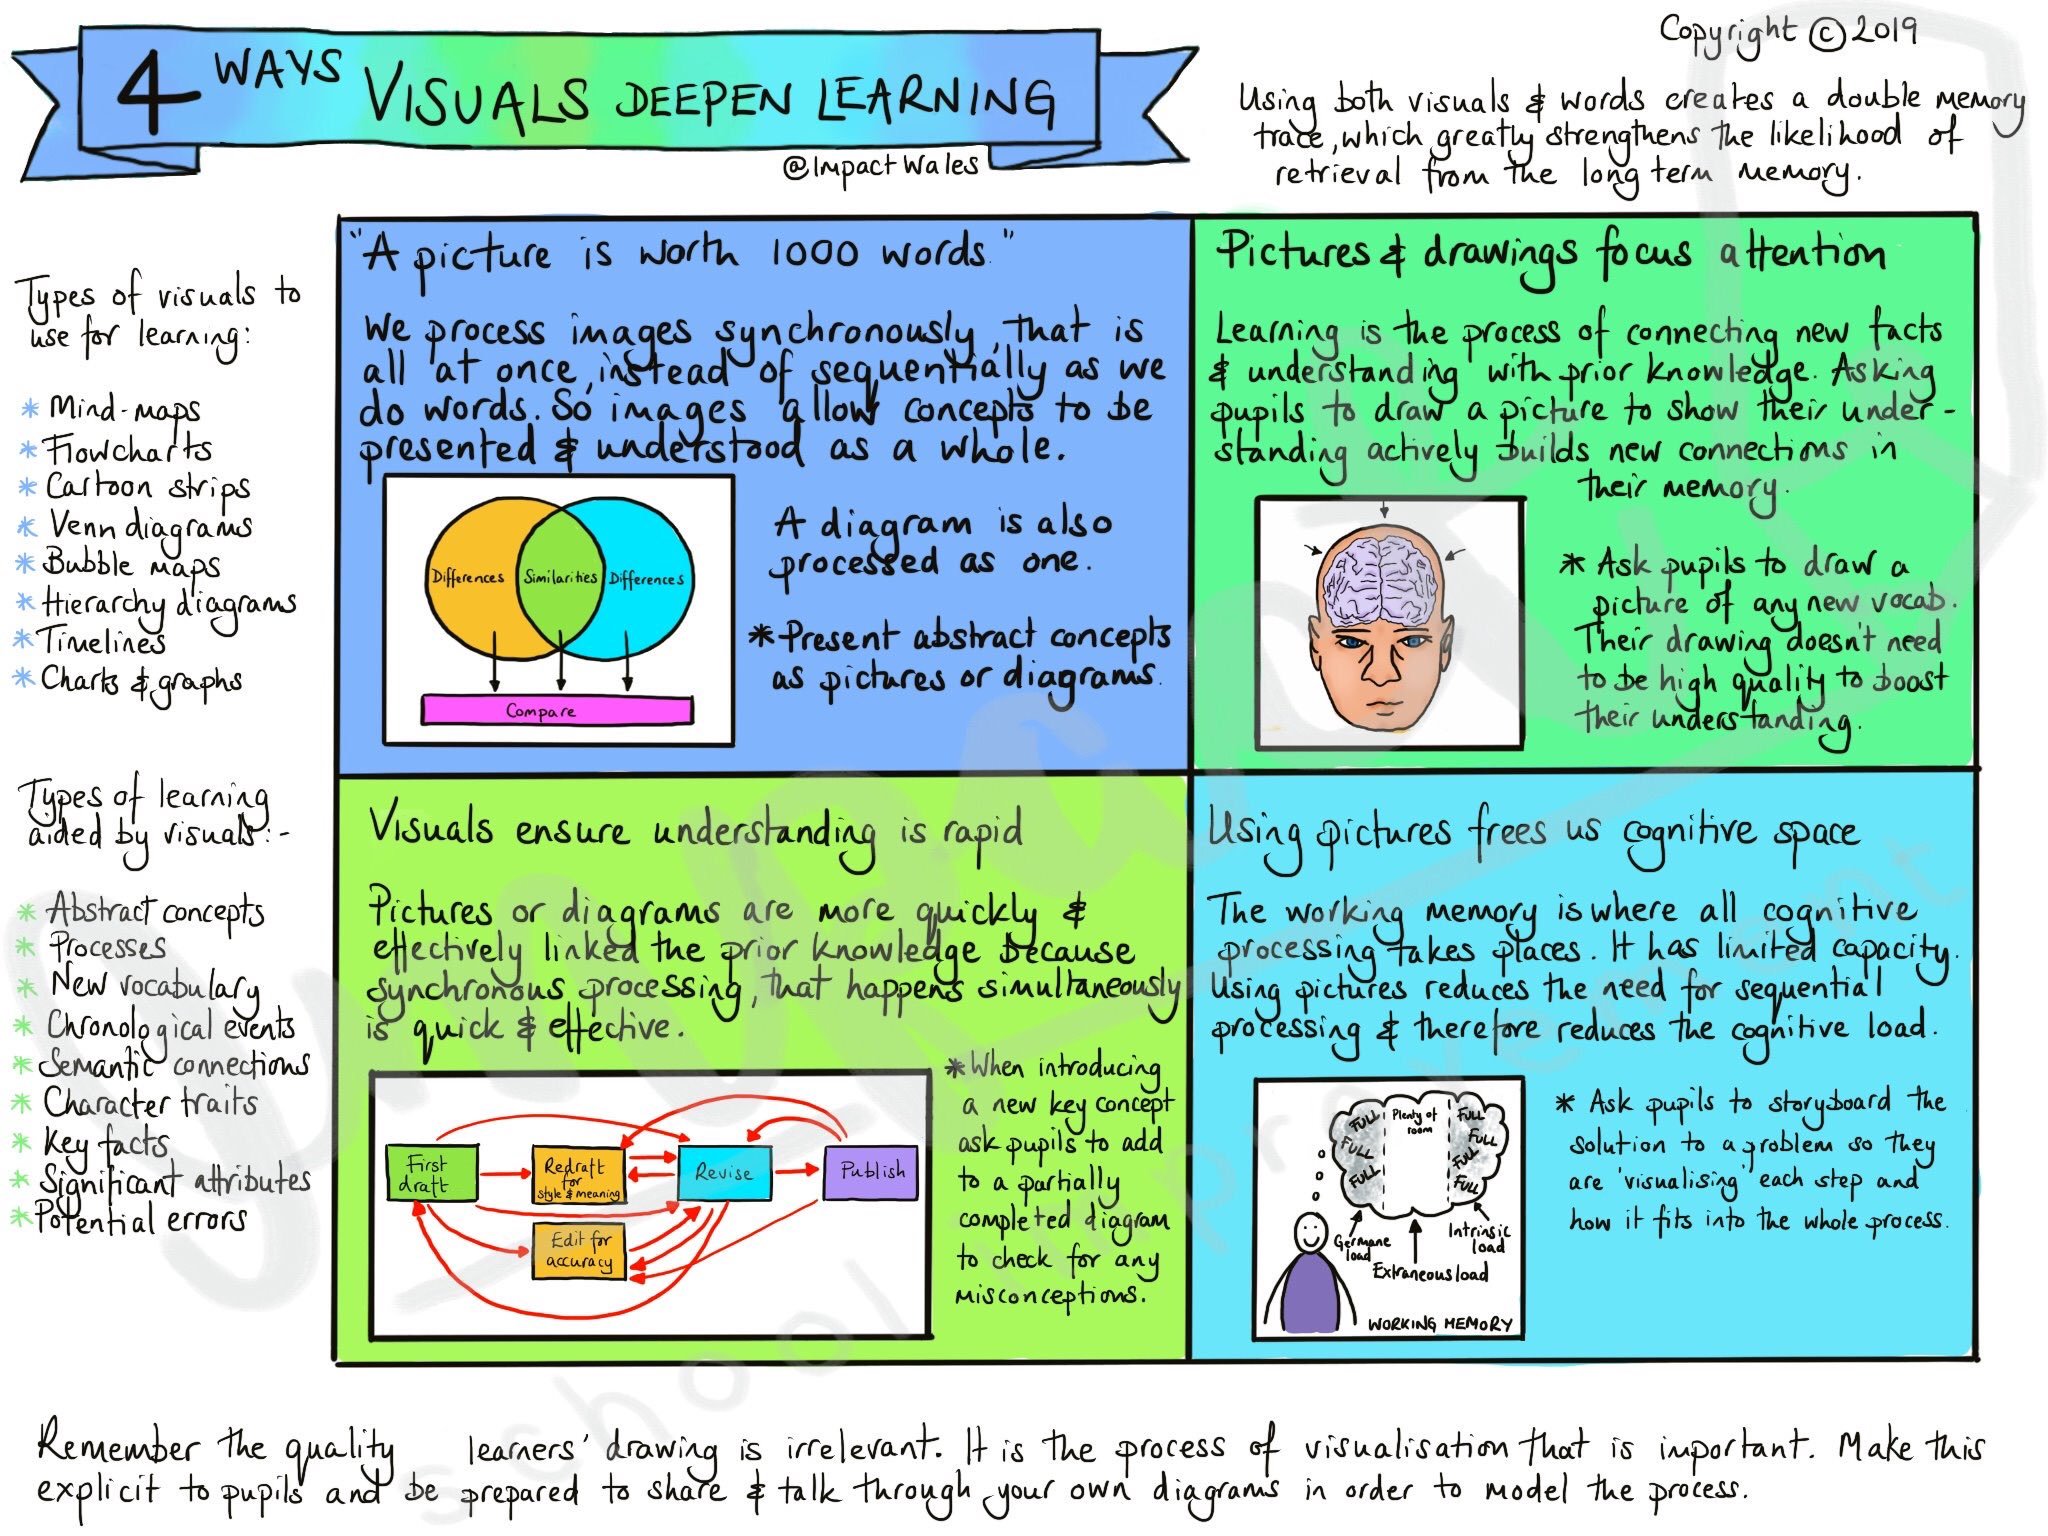 4 WAYS VISUALS DEEPEN LEARNING
@ImpactWales
Copyright © 2019
Using both visuals & words creates a double memory
trace, which greatly strengthens the likelihood of
retrieval from the long term memory.
Types of visuals to
use for learning:
* Mind-maps
* Flowcharts
* Cartoon strips
* Venn diagrams
* Bubble maps
* Hierarchy diagrams
* Timelines
* Charts & graphs
Types of learning
aided by visuals:-
* Abstract concepts
* Processes
* New vocabulary
* Chronological events
* Semantic connections
* Character traits
* Key facts
* Significant attributes
* Potential errors
"A picture is worth 1000 words."
We process images synchronously, that is
all at once, instead of sequentially as we
do words. So images allow concepts to be
presented & understood as a whole.
Differences
Similarities
Differences
Compare
A diagram is also
processed as one.
* Present abstract concepts
as pictures or diagrams.
Pictures & drawings focus attention
Learning is the process of connecting new facts
& understanding with prior knowledge. Asking
pupils to draw a picture to show their under-
standing actively builds new connections in
their memory.
* Ask pupils to draw a
picture of any new vocab.
Their drawing doesn't need
to be high quality to boost
their understanding.
Visuals ensure understanding is rapid
Pictures or diagrams are more quickly &
effectively linked the prior knowledge because
synchronous processing, that happens simultaneously
is quick & effective.
First
draft
Redraft
for
style & meaning
Revise
Publish
Edit for
accuracy
* When introducing
a new key concept
ask pupils to add
to a partially
completed diagram
to check for any
misconceptions.
Using pictures frees us cognitive space
The working memory is where all cognitive
processing takes places. It has limited capacity.
Using pictures reduces the need for sequential
processing & therefore reduces the cognitive load.
FULL
FULL
FULL
FULL
Plenty of
room
FULL
FULL
FULL
FULL
Germane
load
Extraneous load
Intrinsic
load
WORKING MEMORY
* Ask pupils to storyboard the
solution to a problem so they
are 'visualising' each step and
how it fits into the whole process.
Remember the quality learners' drawing is irrelevant. It is the process of visualisation that is important. Make this
explicit to pupils and be prepared to share & talk through your own diagrams in order to model the process.
school improvement